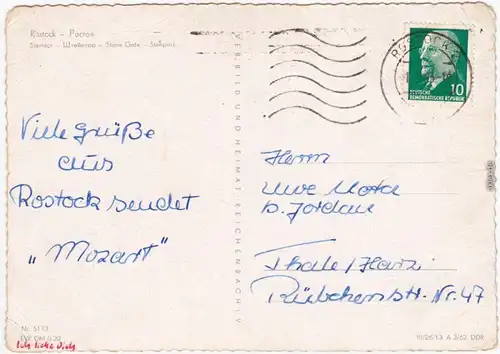 Rostock – Росток
Steintor – Штейнтор – Stone Gate – Steinport
VERLAG BILD UND HEIMAT REICHENBACH i. V.
ROSTOCK
10
DEUTSCHE
DEMOKRATISCHE REPUBLIK
Viele Grüße
aus
Rostock sendet
„Mozart"
Herrn
Uwe
b. Jordan
Thale/Harz
Rübchenstr. Nr. 47
Nr. 5113
EVP DM 0,20
Ich liebe Dich
A 3/62 DDR